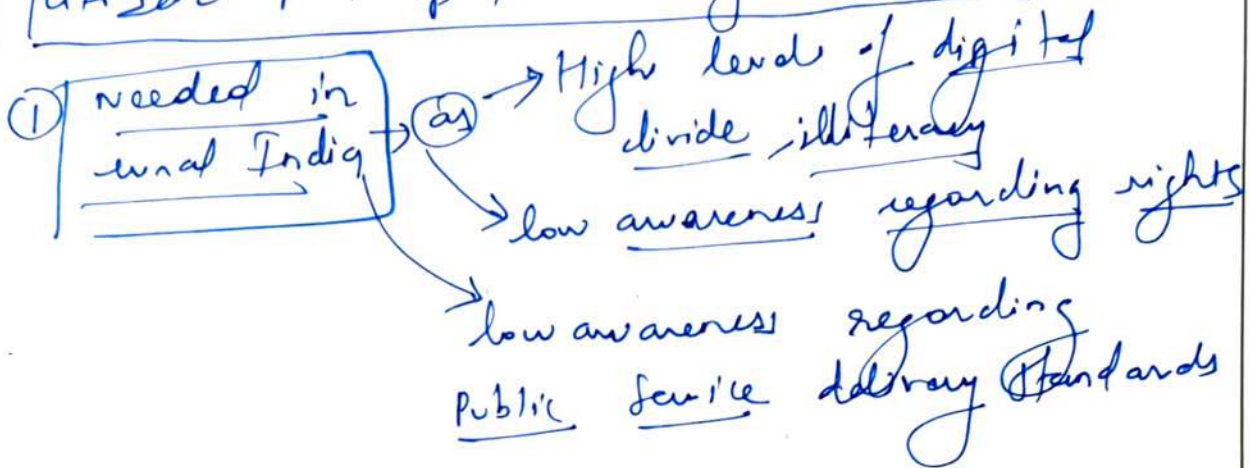 ① Needed in
rural India
as
High level of digital
divide, illiteracy
low awareness regarding rights
low awareness regarding
Public Service delivery standards